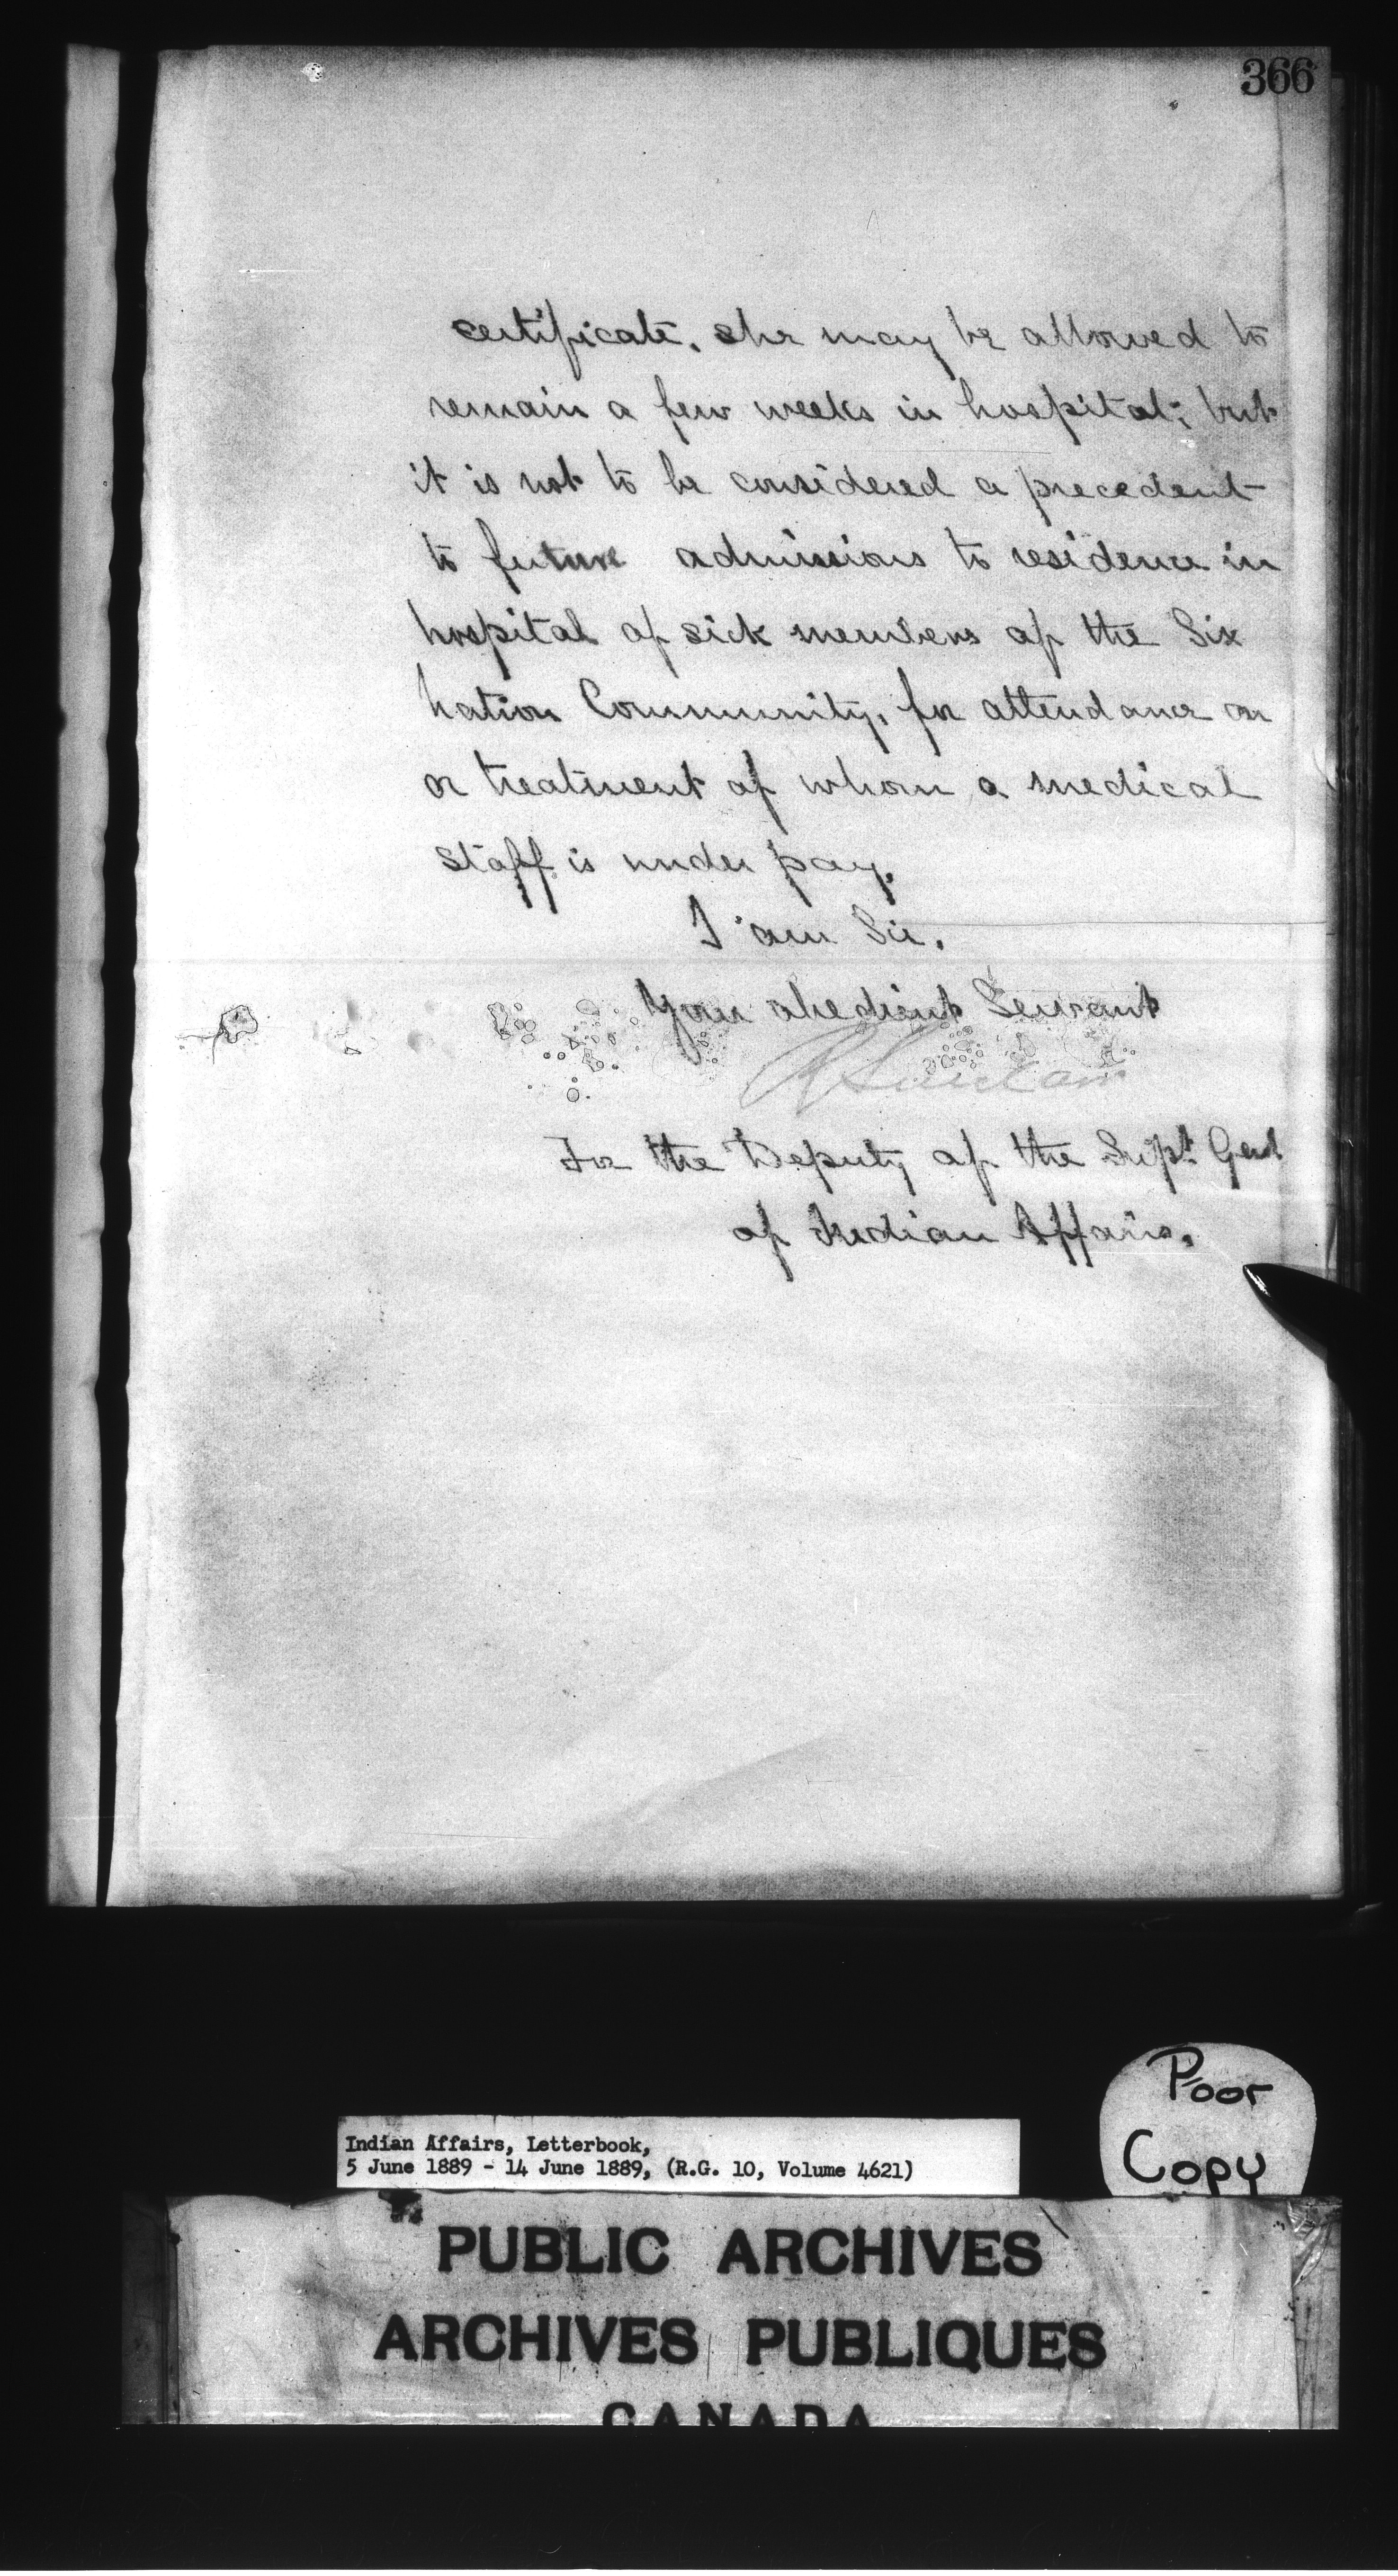 366
certificate, she may be allowed to
remain a few weeks in hospital; but
it is not to be considered a precedent
to future admissions to residence in
hospital of sick members of the Six
Nation Community, for attendance on
or treatment of whom a medical
staff is under pay.
I am Sir,
Your obedient Servant
For the Deputy of the Supt Genl
of Indian Affairs.
Poor
Copy
Indian Affairs, Letterbook,
5 June 1889 - 14 June 1889, (R.G. 10, Volume 4621)
PUBLIC ARCHIVES
ARCHIVES PUBLIQUES
CANADA